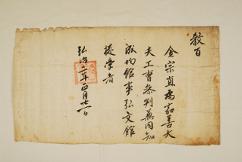 教旨
金宗直爲嘉善大
夫工曹參判兼同知
成均館事弘文館
提學者
弘治二年四月日